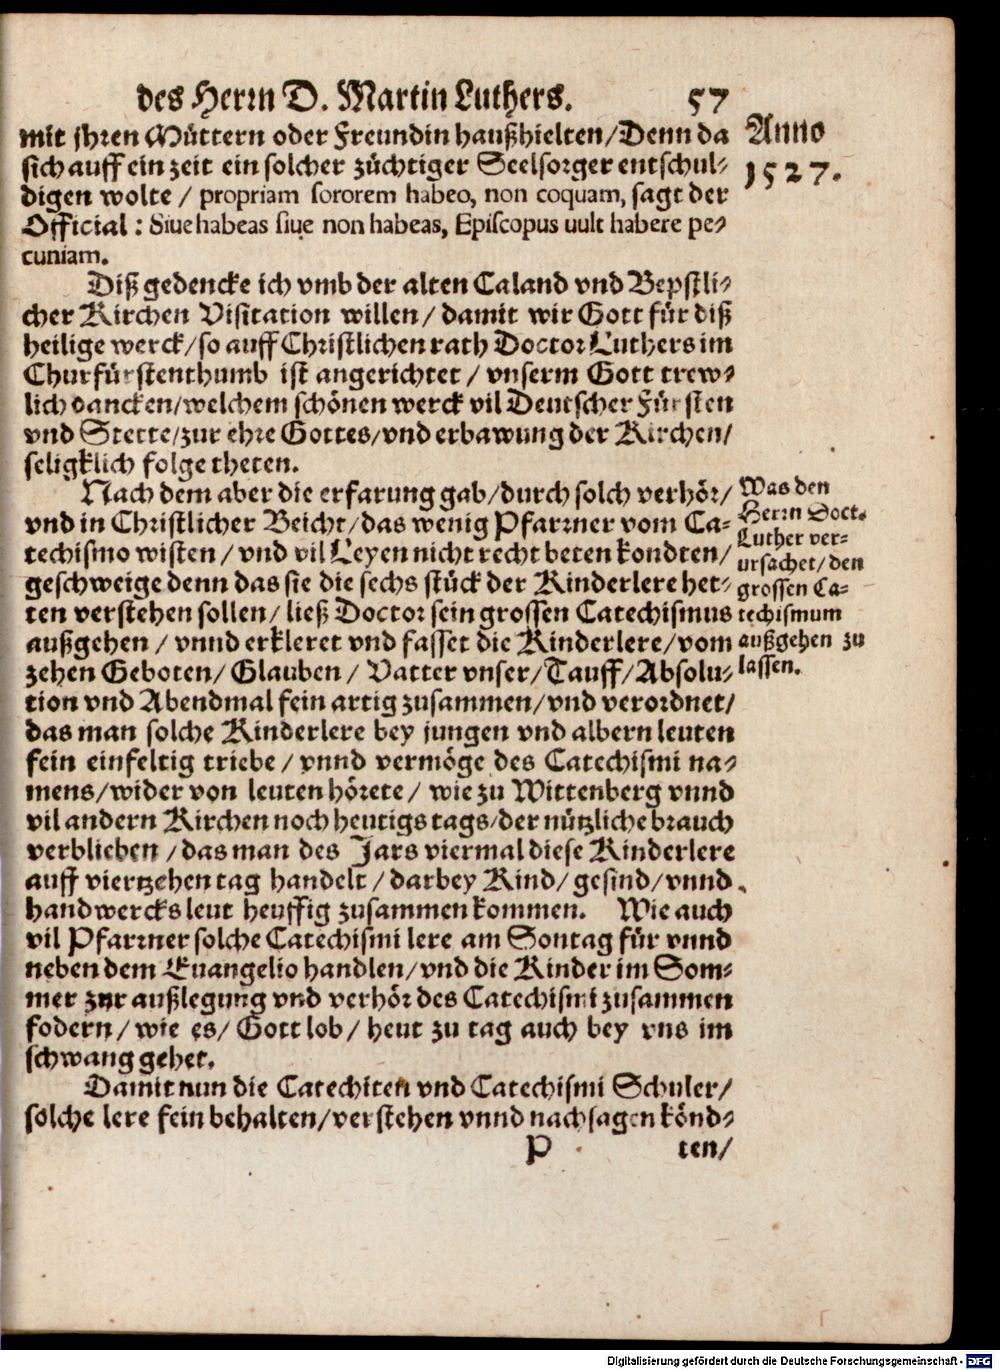 des Herrn D. Martin Luthers. 57
Anno
1527.
mit jhren Müttern oder Freundin haußhielten/Denn da
sich auff ein zeit ein solcher züchtiger Seelsorger entschul-
digen wolte / propriam sororem habeo, non coquam, sagt der
Official: Siue habeas siue non habeas, Episcopus uult habere pe-
cuniam.
Diß gedencke ich vmb der alten Caland vnd Bepstli-
cher Kirchen Visitation willen/ damit wir Gott für diß
heilige werck/so auff Christlichen rath Doctor Luthers im
Churfürstenthumb ist angerichtet / vnserm Gott trew-
lich dancken/welchem schönen werck vil Deutscher Fürsten
vnd Stette/zur ehre Gottes/vnd erbawung der Kirchen/
seligklich folge theten.
Nach dem aber die erfarung gab/durch solch verhör/
vnd in Christlicher Beicht/das wenig Pfarrner vom Ca-
techismo wisten/ vnd vil Leyen nicht recht beten kondten/
geschweige denn das sie die sechs stück der Kinderlere het-
ten verstehen sollen/ ließ Doctor sein grossen Catechismus
außgehen / vnnd erkleret vnd fasset die Kinderlere/vom
zehen Geboten/ Glauben / Vatter vnser/Tauff/Absolu-
tion vnd Abendmal fein artig zusammen/vnd verordnet/
das man solche Kinderlere bey jungen vnd albern leuten
fein einfeltig triebe / vnnd vermöge des Catechismi na-
mens/wider von leuten hörete/ wie zu Wittenberg vnnd
vil andern Kirchen noch heutigs tags/der nützliche brauch
verblieben /das man des Jars viermal diese Kinderlere
auff viertzehen tag handelt / darbey Kind/ gesind/vnnd
handwercksleut heuffig zusammen kommen. Wie auch
vil Pfarrner solche Catechismi lere am Sontag für vnnd
neben dem Euangelio handlen/vnd die Kinder im Som-
mer zur außlegung vnd verhör des Catechismi zusammen
fodern/wie es/ Gott lob/ heut zu tag auch bey vns im
schwang gehet.
Was den
Herrn Doct.
Luther ver-
ursachet/den
grossen Ca-
techismum
außgehen zu
lassen.
Damit nun die Catechiten vnd Catechismi Schuler/
solche lere fein behalten/verstehen vnnd nachsagen könd-
P ten/
Digitalisierung gefördert durch die Deutsche Forschungsgemeinschaft - DFG